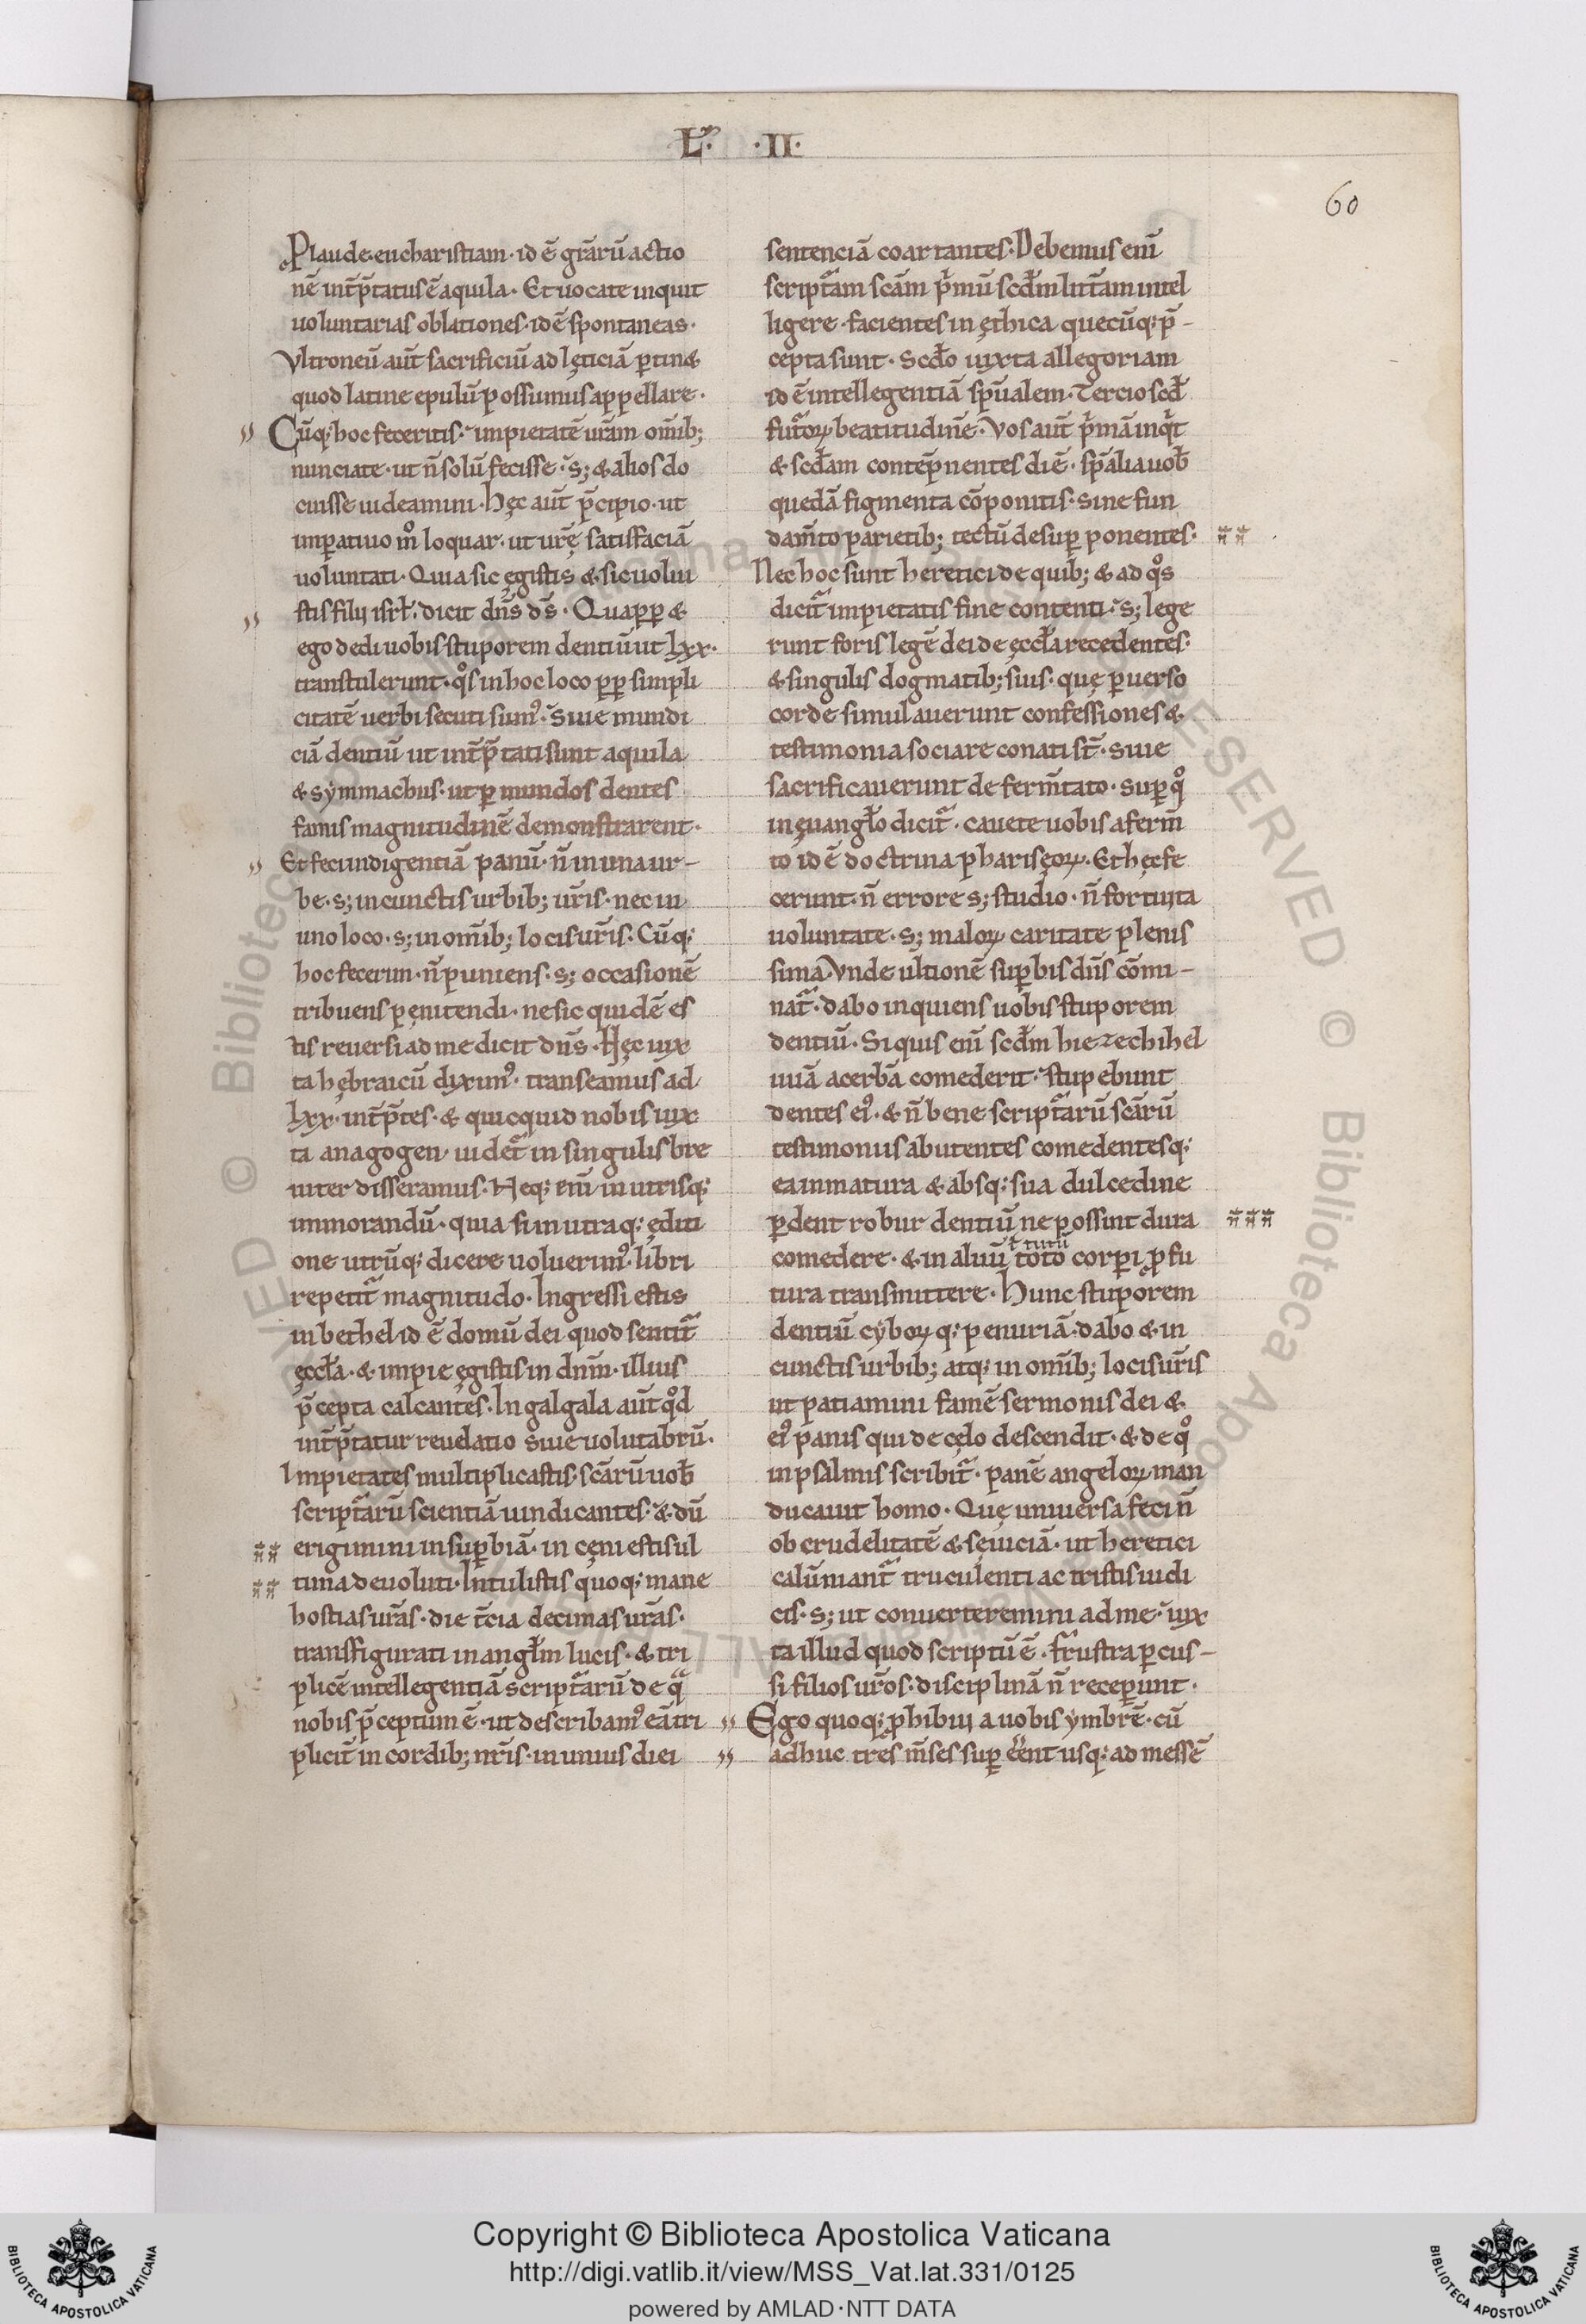 L. · II ·
60
Plaude eucharistiam · id ē grārū actio
nē int̄p̄tatus ē aquila · Et uocate inquit
uoluntarias oblationes · id ē spontaneas ·
Vltroneū aut̄ sacrificiū ad lęticiā ꝑtin&
quod latine epulū possumus appellare ·
Cūq; hoc feceritis · impietatē urām om̄ib;
nunciate · ut n̄ solū fecisse · s; & alios do
cuisse uideamini · hęc aut̄ p̄cipio · ut
imꝑatiuo mͦ loquar · ut urę̄ satisfaciā
uoluntati · Quia sic ęgistis & sic uolui
stis filij isrł · dicit dn̄s ds̄ · Quapp &
ego dedi uobis stuporem dentiū ut lxx ·
transtulerunt · qͦs in hoc loco pp simpli
citatē uerbi secuti sumꝰ · Siue mundi
ciā dentiū ut int̄p̄tati sunt aquila
& sÿmmachus · ut ꝑ mundos dentes
famis magnitudinē demonstrarent ·
Et feci indigentiā panū · n̄ in una ur-
be · s; in cunctis urbib; ur̄is · nec in
uno loco · s; in om̄ib; locis ur̄is · Cūq;
hoc fecerim · n̄ puniens · s; occasionē
tribuens pęnitendi · ne sic quidē es
tis reuersi ad me dicit dn̄s · Hęc iux
ta hębraicū diximꝰ · transeamus ad
lxx · int̄p̄tes · & quicquid nobis iux
ta anagogen uidet᷑ in singulis bre
uiter disseramus · Neq; eni᷑ in utrisq;
immorandū · quia si in utraq; ęditi
one utrūq; dicere uoluerimꝰ · libri
repetit᷑ magnitudo · Ingressi estis
in bethel id ē domū dei quod sentit᷑
ęccła · & impie ęgistis in dnm̄ · illius
p̄cepta calcantes · In galgala aut̄ qͦd
int̄p̄tatur reuelatio siue uolutabrū ·
Impietates multiplicastis · scārū uob̄
script᷑arū scientiā uindicantes · & dū
erigimini in suꝑbiā · in cęni estis ul
tima deuoluti · Intulistis quoq; mane
hostias urās · die t̄cia decimas urās ·
transfigurati in angłm lucis · & tri
plicē intellegentiā script᷑arū de qͣ
nobis p̄ceptum ē · ut describamꝰ eā tri
plicit̄ in cordib; nr̄is · in unius diei
sentenciā coartantes · Debemus eni᷑
script᷑am scām p̄mū scdm̄ litt̄am intel
ligere · facientes in ęthica quecūq; p̄-
cepta sunt · Scdo iuxta allegoriam
id ē intellegentiā sp̄ualem · Tercio scdm̄
fut᷑oꝝ beatitudinē · Vos aut̄ p̄mā inqͥt
& scdam contēpnentes diē · sp̄alia uob̄
quedā figmenta cōponitis · sine fun
dam̄to parietib; tectū desuꝑ ponentes ·
Nec hoc sunt heretici de quib; & ad qͦs
dicit᷑ impietatis fine contenti · s; lege
runt foris legē dei de ęccła recedentes ·
& singulis dogmatib; suis · quę ꝑuerso
corde simulauerunt confessiones &
testimonia sociare conati st̄ · siue
sacrificauerunt de ferm̄tato · suꝑ qͦ
in ęuangło dicit᷑ · cauete uobis a ferm̄
to id ē doctrina pharisęoꝝ · Et hęc fe
cerunt · n̄ errore s; studio · n̄ fortuita
uoluntate · s; maloꝝ caritate plenis
sima Vnde ultionē suꝑbis dn̄s cōmi-
nat᷑ · dabo inquiens uobis stuporem
dentiū · Si quis eni᷑ scdm̄ hiezechihel
uuā acerbā comederit · stupebunt
dentes eiꝰ · & n̄ bene script᷑arū scārū
testimoniis abutentes comedentesq;
ea inmatura & absq; sua dulcedine
ꝑdent robur dentiū ne possint dura
ł tutū
comedere · & in aluū toto corꝑi ꝓfu
tura transmittere · Hunc stuporem
dentiū cÿboꝝq; penuriā · dabo & in
cunctis urbib; atq; in om̄ib; locis ur̄is
ut patiamini famē sermonis dei &
eiꝰ panis qui de cęlo descendit · & de qͦ
in psalmis scribit᷑ · panē angeloꝝ man
ducauit homo · Quę uniuersa feci n̄
ob crudelitatē & sęuiciā · ut heretici
calūniant᷑ truculenti ac tristis iudi
cis · s; ut conuerteremini ad me · iux
ta illud quod scriptū ē · frustra ꝑcus-
si filios ur̄os · disciplinā n̄ receꝑunt ·
Ego quoq; ꝓhibui a uobis ÿmbrē · cū
adhuc tres m̄ses suꝑ eēnt usq; ad messē
Copyright © Biblioteca Apostolica Vaticana
http://digi.vatlib.it/view/MSS_Vat.lat.331/0125
powered by AMLAD·NTT DATA
BIBLIOTECA APOSTOLICA VATICANA
BIBLIOTECA APOSTOLICA VATICANA